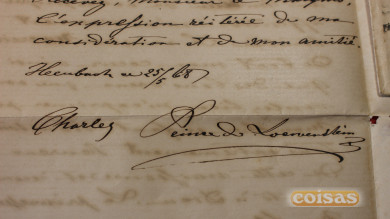 Recevez, Monsieur le Marquis,
l'expression réitérée de ma
considération et de mon amitié.
Heubach ce 25/5 68
Charles Prince de Loewenstein
coisas